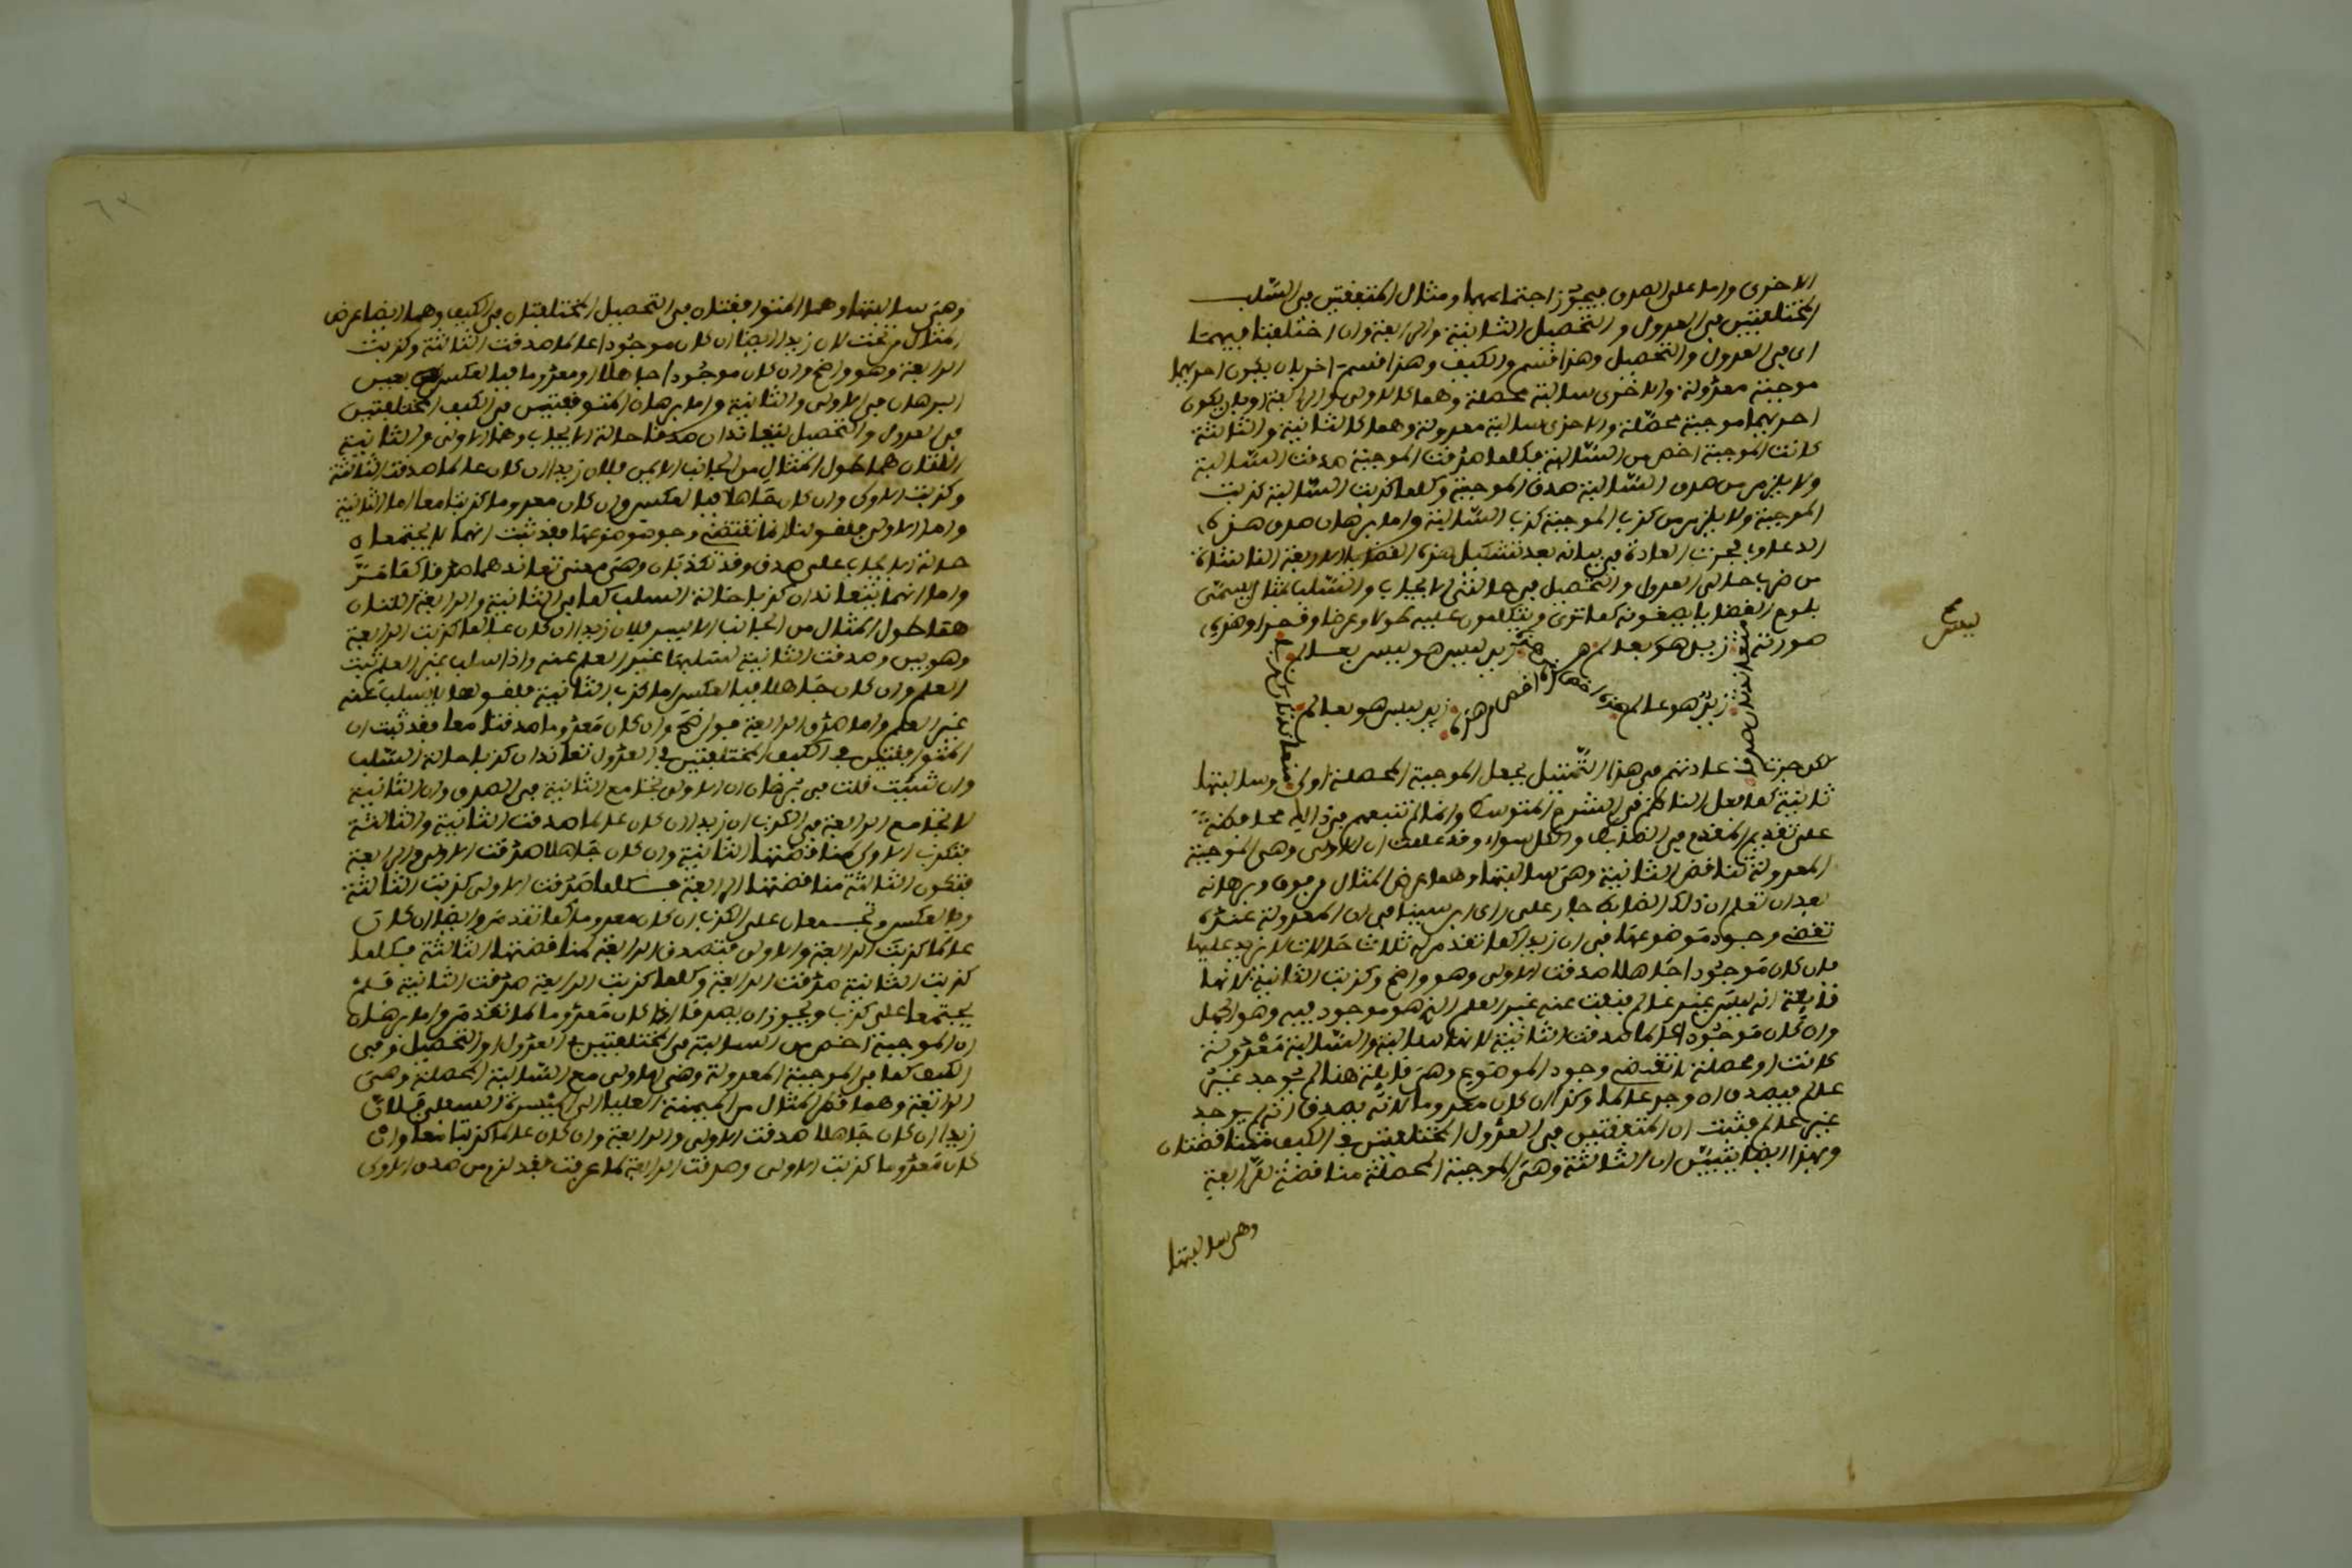 الاخرى واما على الصدق فيجوز اجتماعهما ومثال المتفقتين في السلب
المختلفتين في العدول والتحصيل الثانية والرابعة وان اختلفتا فيهما
اي في العدول والتحصيل وهذا قسم والكيف وهذا قسم اخر بان يكون احديهما
موجبة معدولة والاخرى سالبة محصلة وهما كالاولى والرابعة او بان يكون
احديهما موجبة محصلة والاخرى سالبة معدولة وهما كالثانية والثالثة
كانت الموجبة اخص من السالبة فكلما صدقت الموجبة صدقت السالبة
ولا يلزم من صدق السالبة صدق الموجبة وكلما كذبت السالبة كذبت
الموجبة ولا يلزم من كذب الموجبة كذب السالبة واما برهان صدق هذه
الدعاوي فجرت العادة في بيانه بعد تشكيل هذه القضايا الاربعة الناشئة
من ضرب حالتي العدول والتحصيل في حالتي الايجاب والسلب بمثال يسمى
بلوح القضايا يضعونه كما ترى ويتكلمون عليه طولا وعرضا وقطرا وهذه
صورته زيد هو بعالم زيد ليس هو ليس بعالم
زيد هو عالم هذه اخص اخص من هذه زيد ليس هو بعالم
متعاندتان صدقا
متعاندتان كذبا
لكن جرت عادتهم في هذا التمثيل بجعل الموجبة المحصلة اولى وسالبتها
ثانية كما فعل الناظم في الشرح المتوسط وانما لم نتبعهم في ذلك محافظة
على تقديم المقدم في النظم والكل سواء وقد علمت ان الاولى وهي الموجبة
المعدولة تناقض الثانية وهي سالبتها وهما عرض المثال من فوق وبرهانه
بعد ان تعلم ان ذلك انما هو جار على راي ابن سينا في ان المعدولة عنده
تقتضي وجود موضوعها في ان زيدا كما تقدم له ثلاث حالات لا يزيد عليها
فان كان موجودا جاهلا صدقت الاولى وهو واضح وكذبت الثانية لانها
قايلة انه ليس غير عالم فنفت عنه غير العلم الذي هو موجود فيه وهو الجهل
وان كان موجودا عالما صدقت الثانية لانها سالبة والسالبة معدولة
كانت او محصلة لا تقتضي وجود الموضوع وهي قايلة هنا لم يوجد غير
عالم فيصدق ان وجد عالما وكذا ان كان معدوما لانه يصدق انه لم يوجد
غير عالم فثبت ان المتفقتين في العدول المختلفتين في الكيف متناقضتان
وبهذا ايضا يتبين ان الثالثة وهي الموجبة المحصلة مناقضة للرابعة
وهي سالبتها
ليس صح
٦٢
وهي سالبتها وهما المتوافقتان في التحصيل المختلفتان في الكيف وهما ايضا عرض
المثال من تحت لان زيدا ايضا ان كان موجودا عالما صدقت الثالثة وكذبت
الرابعة وهو واضح وان كان موجودا جاهلا او معدوما فبالعكس بعين
البرهان في الاولى والثانية واما برهان المتوافقتين في الكيف المختلفتين
في العدول والتحصيل يتعاندان صدقا حالة الايجاب وهما الاولى والثالثة
اللتان هما طول المثال من الجانب الايمن فلان زيدا ان كان عالما صدقت الثالثة
وكذبت الاولى وان كان جاهلا فبالعكس وان كان معدوما كذبتا معا اما الثالثة
واما الاولى فلقولنا انها تقتضي وجود موضوعها فقد ثبت انهما لا يجتمعان
حالة الايجاب على صدق وقد تكذبان وهي معنى تعاندهما صدقا كما مر
واما انهما يتعاندان كذبا حالة السلب كما في الثانية والرابعة اللتان
هما طول المثال من الجانب الايسر فلان زيدا ان كان عالما كذبت الرابعة
وهو بين وصدقت الثانية لسلبها غير العلم عنه واذا سلب غير العلم ثبت
العلم وان كان جاهلا فبالعكس اما كذب الثانية فلقولها بسلب عنه
غير العلم واما صدق الرابعة فواضح وان كان معدوما صدقتا معا فقد ثبت ان
المتوافقتين في الكيف المختلفتين في العدول تعاندان كذبا حالة السلب
وان شئت قلت في برهان ان الاولى تجامع الثانية في الصدق وان الثانية
لا تجامع الرابعة في الكذب ان زيدا ان كان عالما صدقت الثانية والثالثة
فتكذب الاولى لمناقضتها الثانية وان كان جاهلا صدقت الاولى والرابعة
فتكون الثالثة مناقضتها الرابعة فكلما صدقت الاولى كذبت الثالثة
وبالعكس وتجتمعان على الكذب ان كان معدوما كما تقدم وايضا ان كان
عالما كذبت الرابعة والاولى فتصدق الرابعة لمناقضتها الثالثة فكلما
كذبت الثانية صدقت الرابعة وكلما كذبت الرابعة صدقت الثانية فلم
يجتمعا على كذب ويجوز ان يصدقا اذا كان معدوما كما تقدم واما برهان
ان الموجبة اخص من السالبة في المختلفتين في العدول والتحصيل وفي
الكيف كما في الموجبة المعدولة وهي الاولى مع السالبة المحصلة وهي
الرابعة وهما قطر المثال من الميمنة العليا الى الميسرة السفلى فلان
زيدا ان كان جاهلا صدقت الاولى والرابعة وان كان عالما كذبتا معا وان
كان معدوما كذبت الاولى وصدقت الرابعة كما عرفت فقد لزم من صدق الاولى